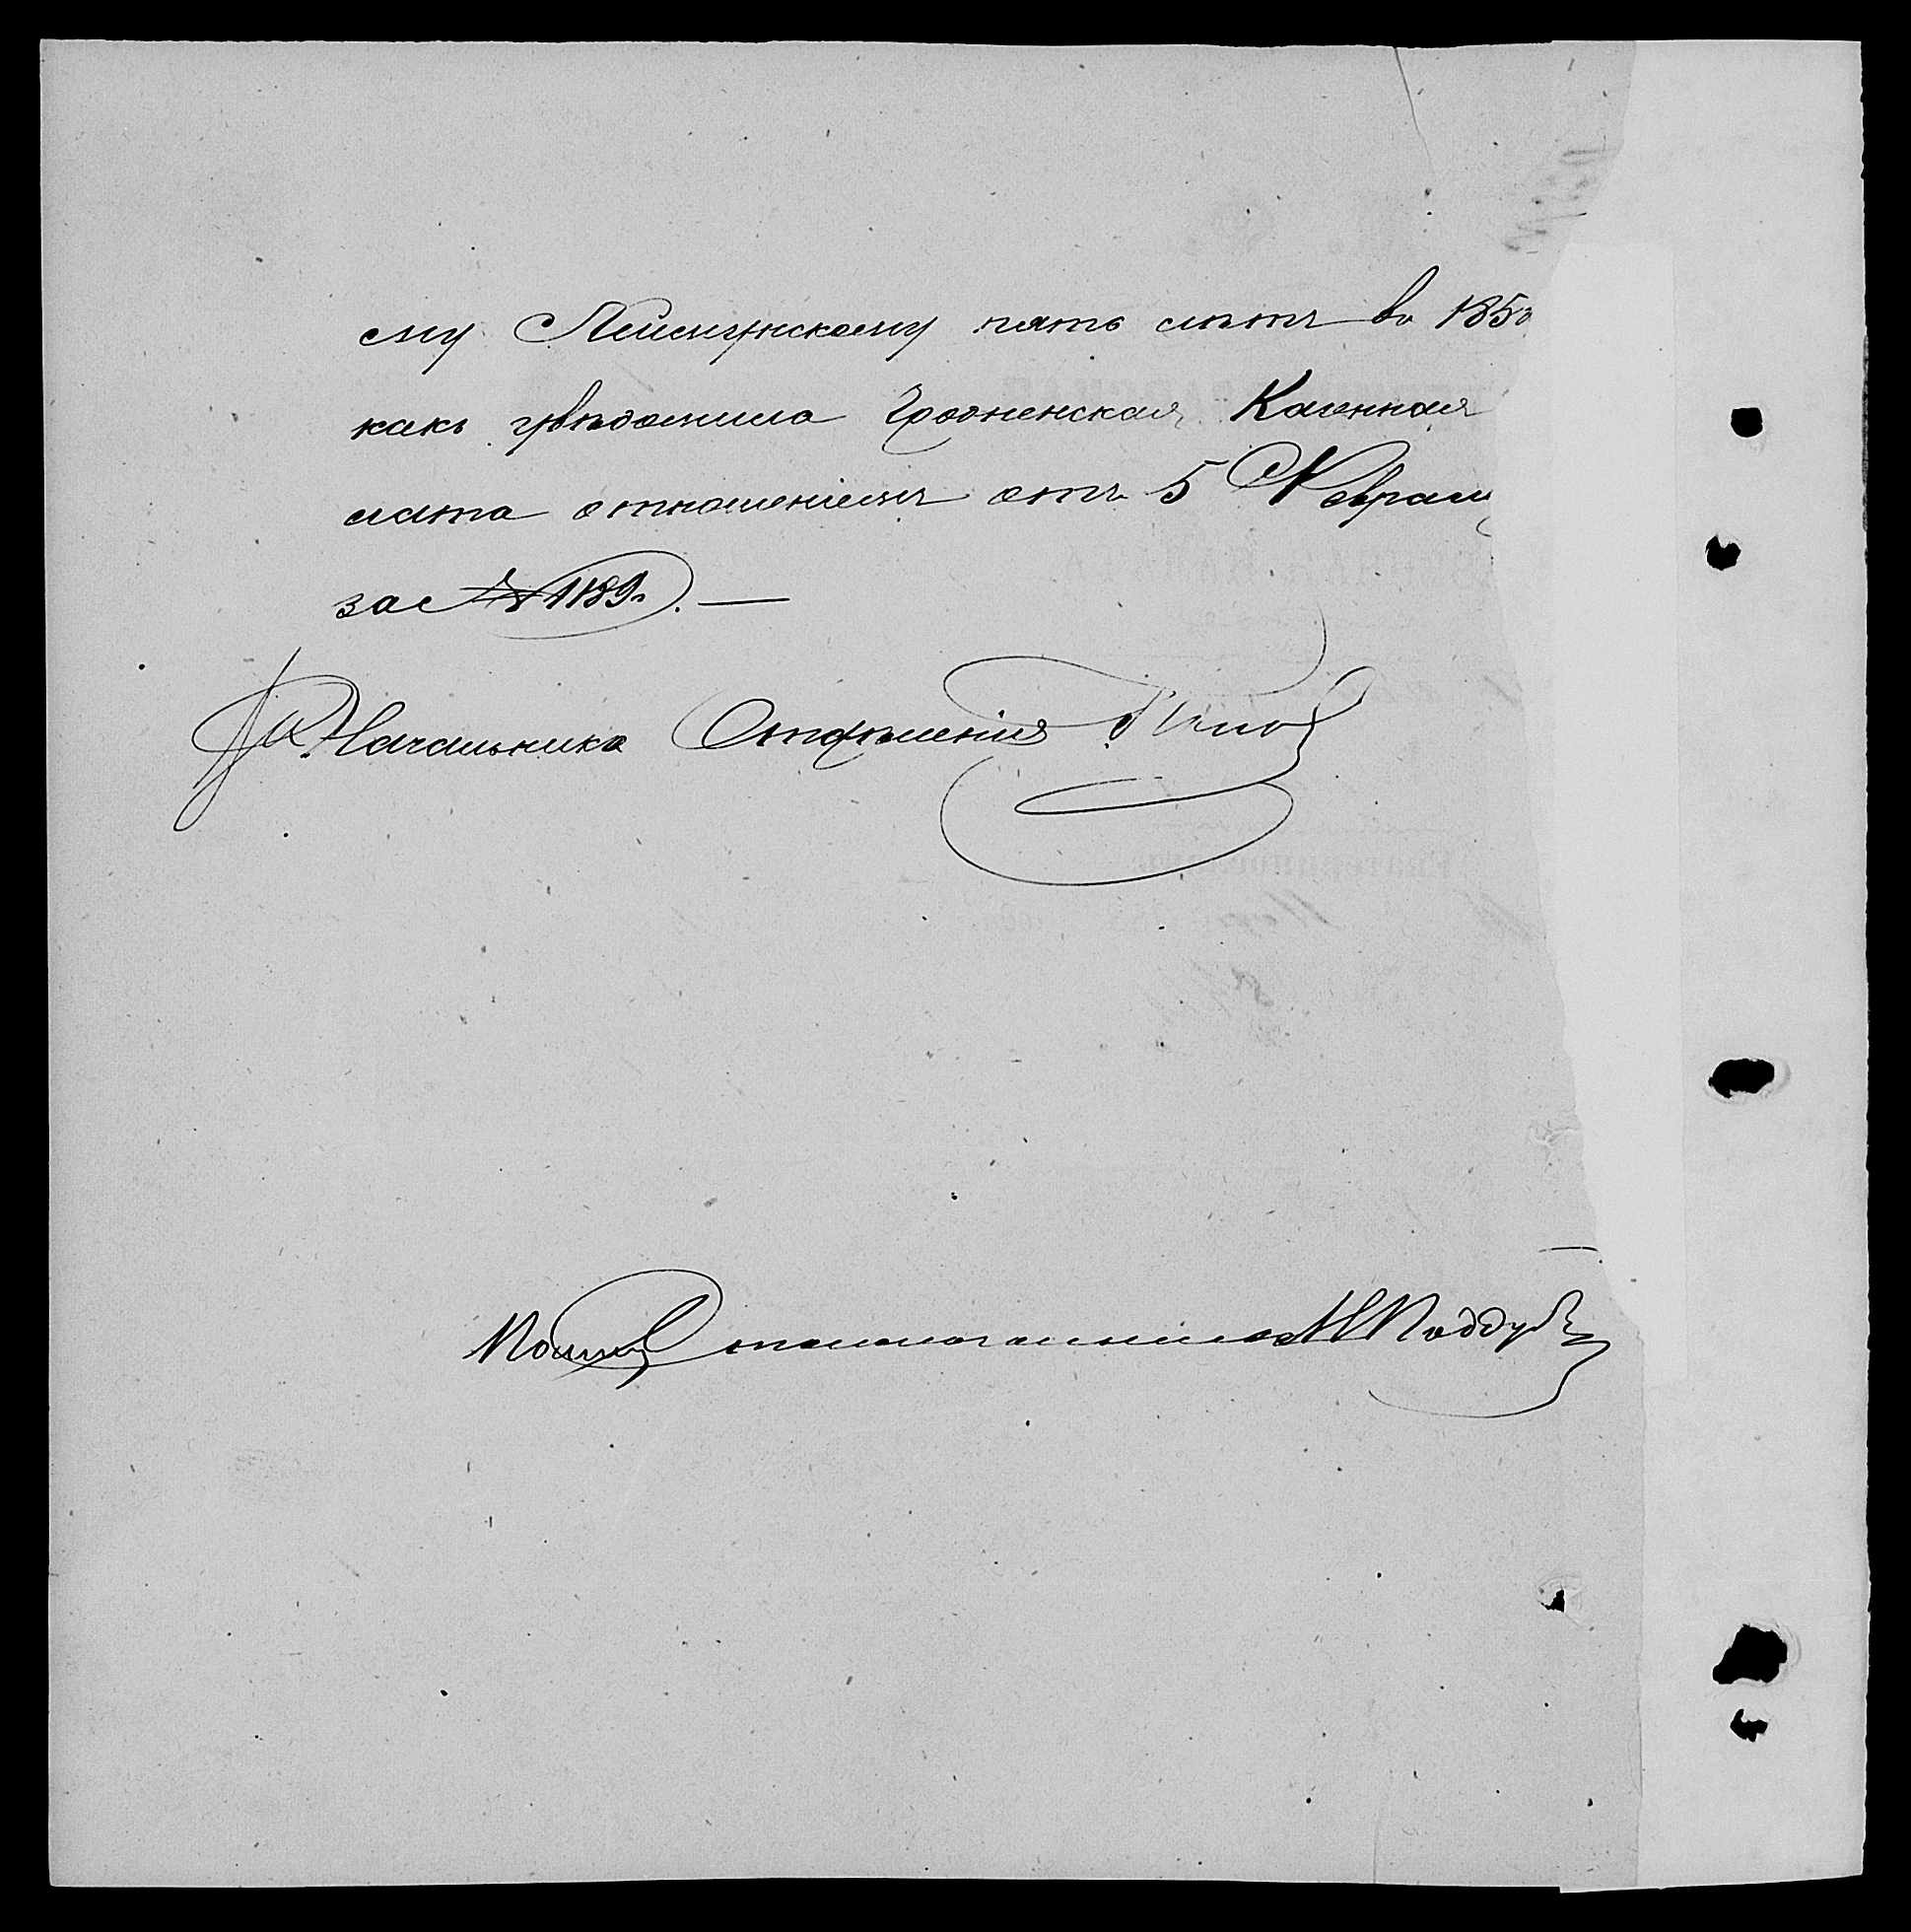 му Лейзгунскому пять лѣтъ въ 1850
какъ увѣдомила Гродненская Казенная
лата отношеніемъ отъ 5 Феврал
за № 1189. —
За Начальника Отдѣленія
Помощ Столоначальника Н Поддуб